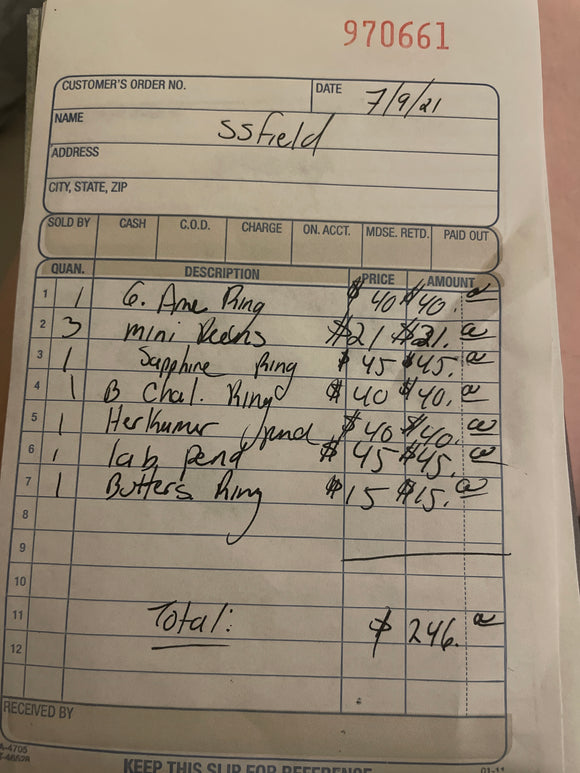 970661
CUSTOMER'S ORDER NO. DATE 7/9/21
NAME SSField
ADDRESS
CITY, STATE, ZIP
SOLD BY CASH C.O.D. CHARGE ON. ACCT. MDSE. RETD. PAID OUT
QUAN. DESCRIPTION PRICE AMOUNT
1 1 G. Ame Ring $40 $40.00
2 3 mini $21 $21.00
3 1 Sapphire Ring $45 $45.00
4 1 B Chal. Ring $40 $40.00
5 1 Herkumer pend $40 $40.00
6 1 lab pend $45 $45.00
7 1 Butters Ring $15 $15.00
8
9
10
11 Total: $246.00
12
RECEIVED BY
A-4705
T-4652R 01-11
KEEP THIS SLIP FOR REFERENCE